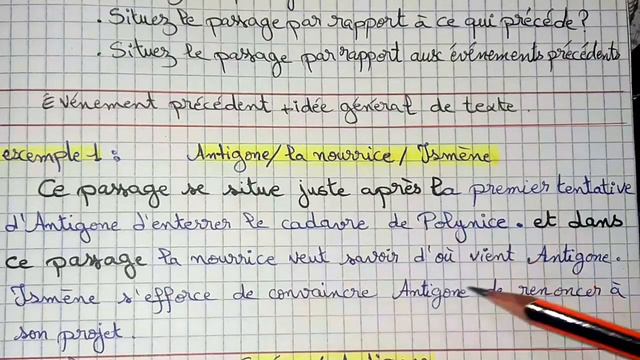 . Situez le passage par rapport à ce qui précède ?
. Situez le passage par rapport aux événements précédents
Evénement précédent + idée général de texte.
exemple 1 : Antigone / la nourrice / Ismène
Ce passage se situe juste après la premier tentative
d'Antigone d'enterrer le cadavre de Polynice. et dans
ce passage la nourrice veut savoir d'où vient Antigone.
Ismène s'efforce de convaincre Antigone de renoncer à
son projet.